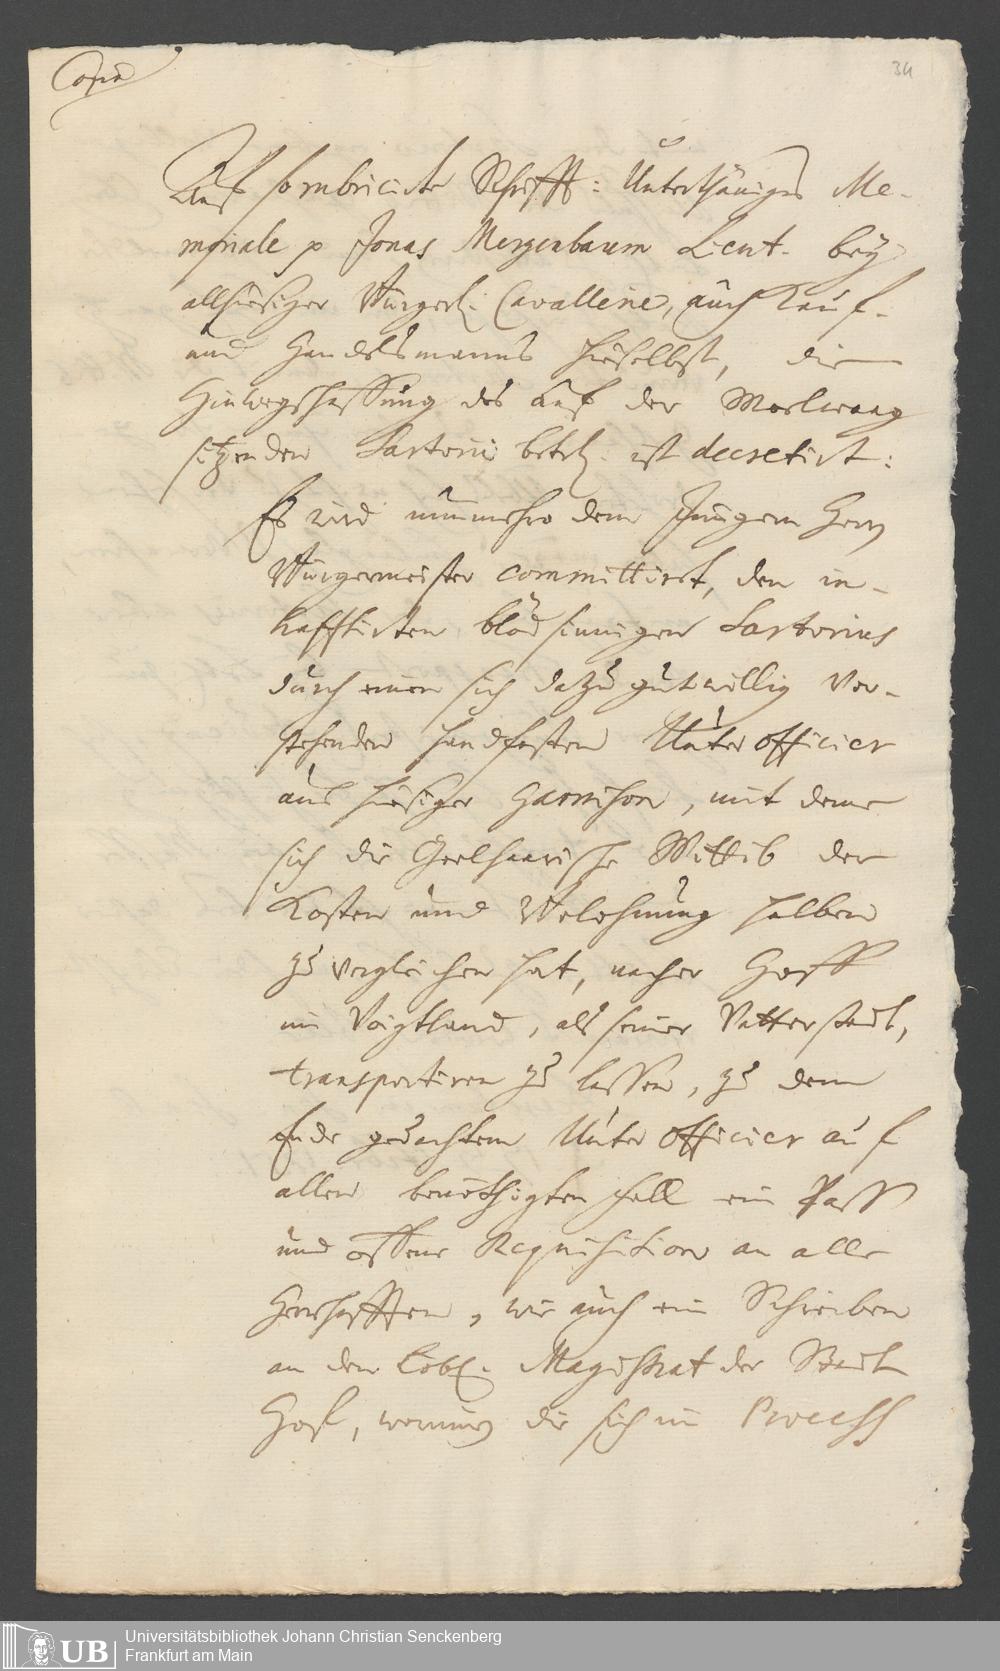 Copia
34
Auf so rubricirte Schrifft: Unterthäniges Me-
moriale p Jonas Mergenbaum Lieut. bey
allhiesiger Bürgerl. Cavallerie, auch Kauf-
und Handelsmanns hieselbst, die
Hinwegschaffung des auf der Mehlwaag
sitzenden Sartorii betrl. ist decretirt:
Es wird nunmehro dem Jüngern Herrn
Bürgermeister committirt, den in-
hafftirten blödsinnigen Sartorius
durch einen sich dazu gutwillig ver-
stehenden handfesten Unter officier
aus hiesiger Garnison, mit deme
sich die Geelhaarische Wittib der
Kosten und Belohnung halben
zu vergleichen hat, nacher Hoff
im Voigtland, als seiner Vatterstadt,
transportiren zu lassen, zu dem
Ende gedachtem Unter officier auf
allen benöthigten fall ein Pass
und offene Requisition an alle
Herrschafften, wie auch ein Schreiben
an den Löbl. Magistrat der Stadt
Hof, worinn die sich im Process
UB
Universitätsbibliothek Johann Christian Senckenberg
Frankfurt am Main